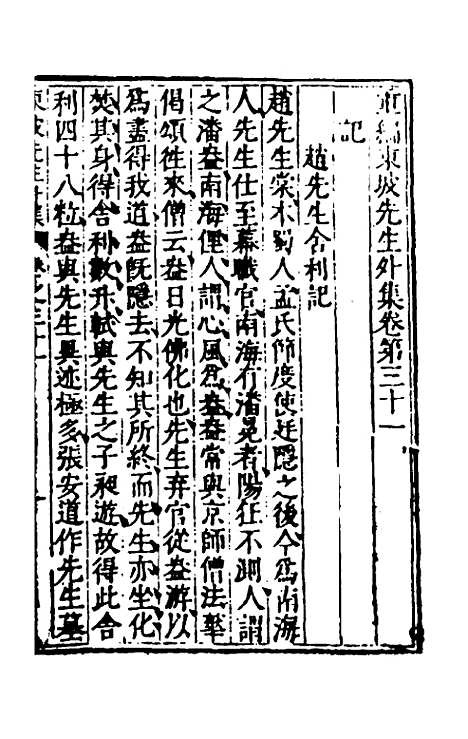 重編東坡先生外集卷第三十一
記
趙先生舍利記
趙先生棠本蜀人孟氏節度使廷隱之後今爲南海
人先生仕至幕職官南海有潘冕者陽狂不測人謂
之潘盎南海俚人謂心風爲盎盎常與京師僧法華
偈頌徃來僧云盎日光佛化也先生弃官從盎游以
爲盡得我道盎旣隱去不知其所終而先生亦坐化
焚其身得舍利數升軾與先生之子昶遊故得此舍
利四十八粒盎與先生異迹極多張安道作先生墓
東坡先生外集 卷之三十一